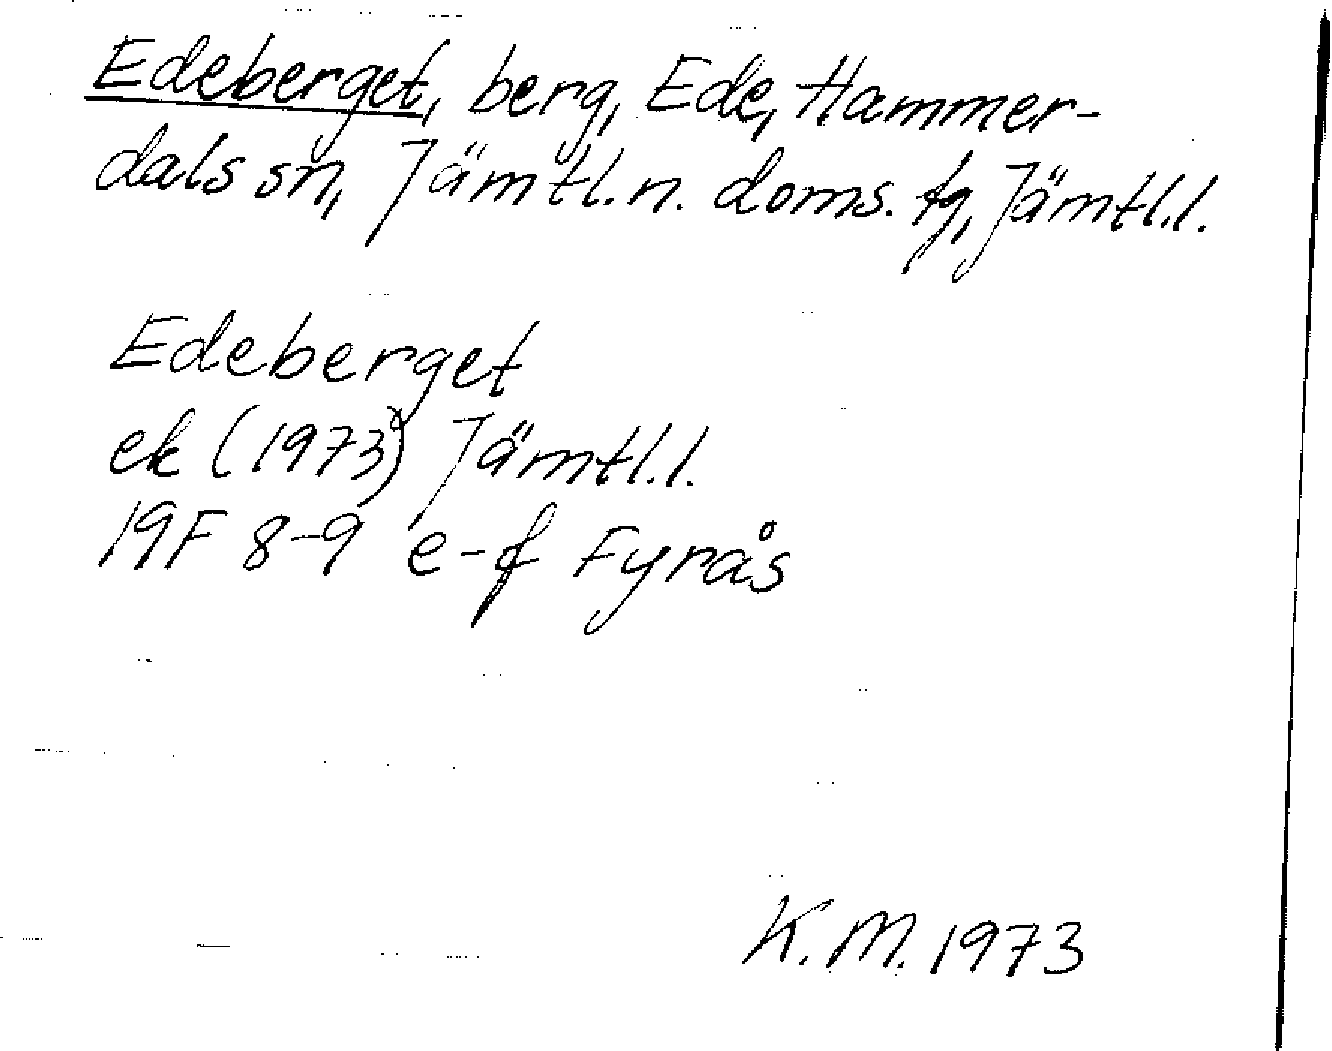 Edeberget, berg, Ede, Hammer-
dals sn, Jämtl. n. doms. tg, Jämtl. l.
Edeberget
ek (1973) Jämtl. l.
19F 8-9 e-f Fyrås
K. M. 1973